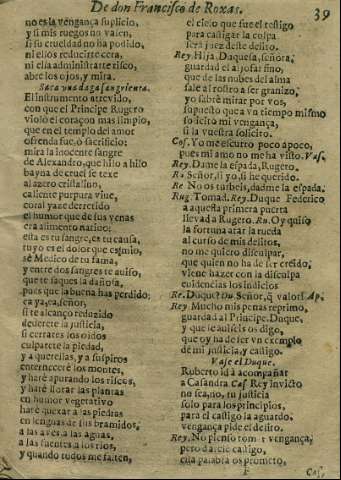 De don Francisco de Roxas. 39
no es la vengança suplicio,
y si mis ruegos no valen,
si su crueldad no ha podido,
ni ellos reducirte cera,
ni essa administrarte risco,
abre los ojos, y mira.
Saca una daga sangrienta.
El instrumento atrevido,
con que el Principe Rugero
violò el coraçon mas limpio,
que en el templo del amor
ofrenda fue, o sacrificio:
mira la inocente sangre
de Alexandro, que hilo a hilo
bayna de cruel se texe
al azero cristalino,
caliente purpura viue,
coral yaze derretido
el humor que de sus venas
era alimento natiuo:
esta es tu sangre, es tu causa,
tuyo es el dolor que
sè Medico de tu fama,
y entre dos sangres te auiso,
que te saques la dañosa,
pues que la buena has perdido:
ea ya, ea, señor,
si te alcançò reduzido
deuerete la justicia,
si cerrares los oidos
culparete la piedad,
y a querellas, y a suspiros
enternecerè los montes,
y harè apurando los riscos,
y harè llorar las plantas
en humor vegetatiuo
harè quexar a las piedras
en lenguas de sus bramidos,
a las aves, a las aguas,
a las fuentes, a los rios,
y quando todos me falten,
el cielo que fue el testigo
para castigar la culpa
serà juez deste delito.
Rey. Hija, Duquesa, señora,
guardad el aljofar fino,
que de las nubes del alma
sale al rostro a ser granizo,
yo sabrè mirar por vos,
supuesto que a vn tiempo mismo
solicito mi vengança,
si la vuestra solicito.
Cas. Yo me escurro poco a poco,
pues mi amo no me ha visto. Vas.
Rey. Dame la espada, Rugero.
Ru. Señor, si yo, si he querido.
Re. No os turbeis, dadme la espada.
Rug. Tomad. Rey. Duque Federico
a aquessa primera puerta
lleuad a Rugero. Ru. Oy quiso
la fortuna atar la rueda
al curso de mis delitos,
no me quiero disculpar,
que quien no ha de ser creido,
viene hazer con la disculpa
euidencias los indicios
Re. Duque? Du. Señor, q̃ valor! Ap.
Rey. Mucho mis penas reprimo,
guardad al Principe, Duque,
y que le auiseis os digo,
que oy ha de ser vn exemplo
de mi justicia, y castigo.
Vase el Duque.
Roberto id à acompañar
a Casandra Cas. Rey inuicto
no sea, no, tu justicia
solo para los principios,
para el castigo la aguardo,
vengança pide el delito.
Rey. No pienso tomar vengança,
pero darele castigo,
esta palabra os prometo,
F Cas.